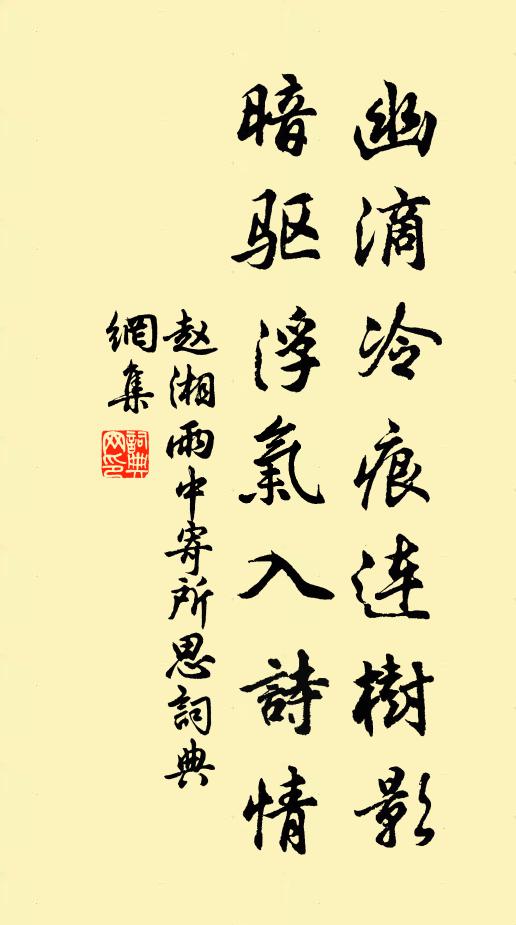 幽滴冷痕連樹影
暗驱浮氣入詩情
赵湘雨中寄所思詞典
網集
詞典
网印